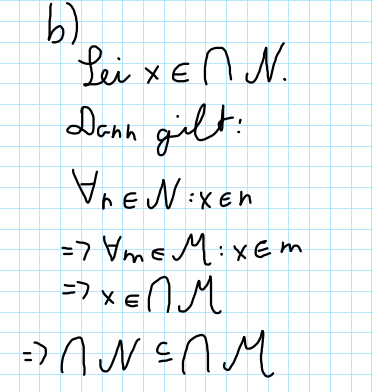 b)
Sei x ∈ ⋂ N.
Dann gilt:
∀n ∈ N : x ∈ n
=> ∀m ∈ M : x ∈ m
=> x ∈ ⋂ M
=> ⋂ N ⊆ ⋂ M